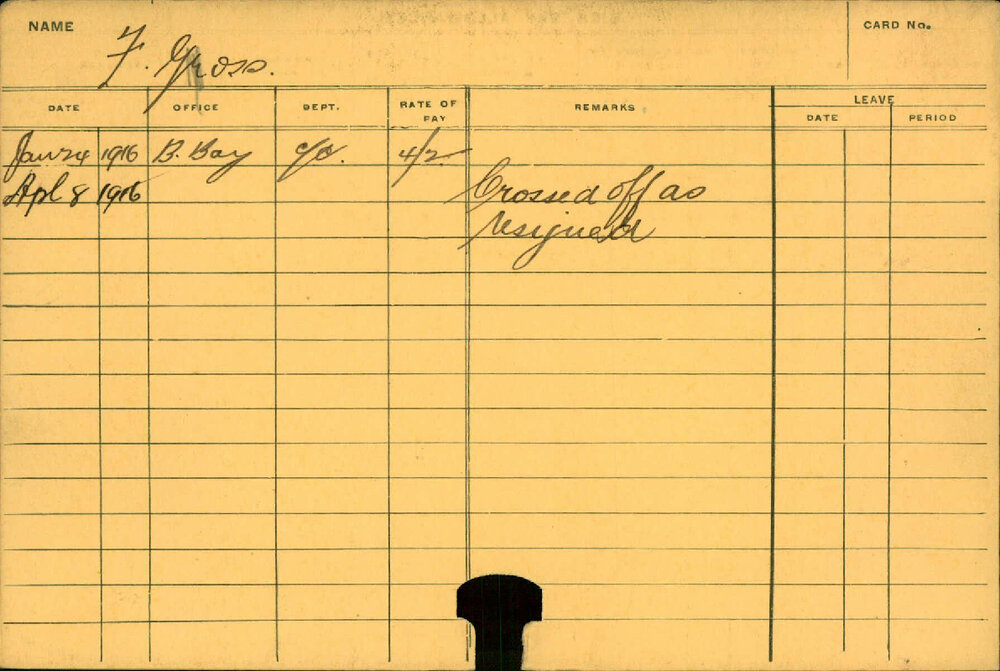 NAME
F. Gross.
CARD No.
DATE OFFICE DEPT. RATE OF PAY REMARKS LEAVE
DATE PERIOD
Jan 24 1916 B. Bay 4/2
Apl 8 1916 Crossed off as
resigned